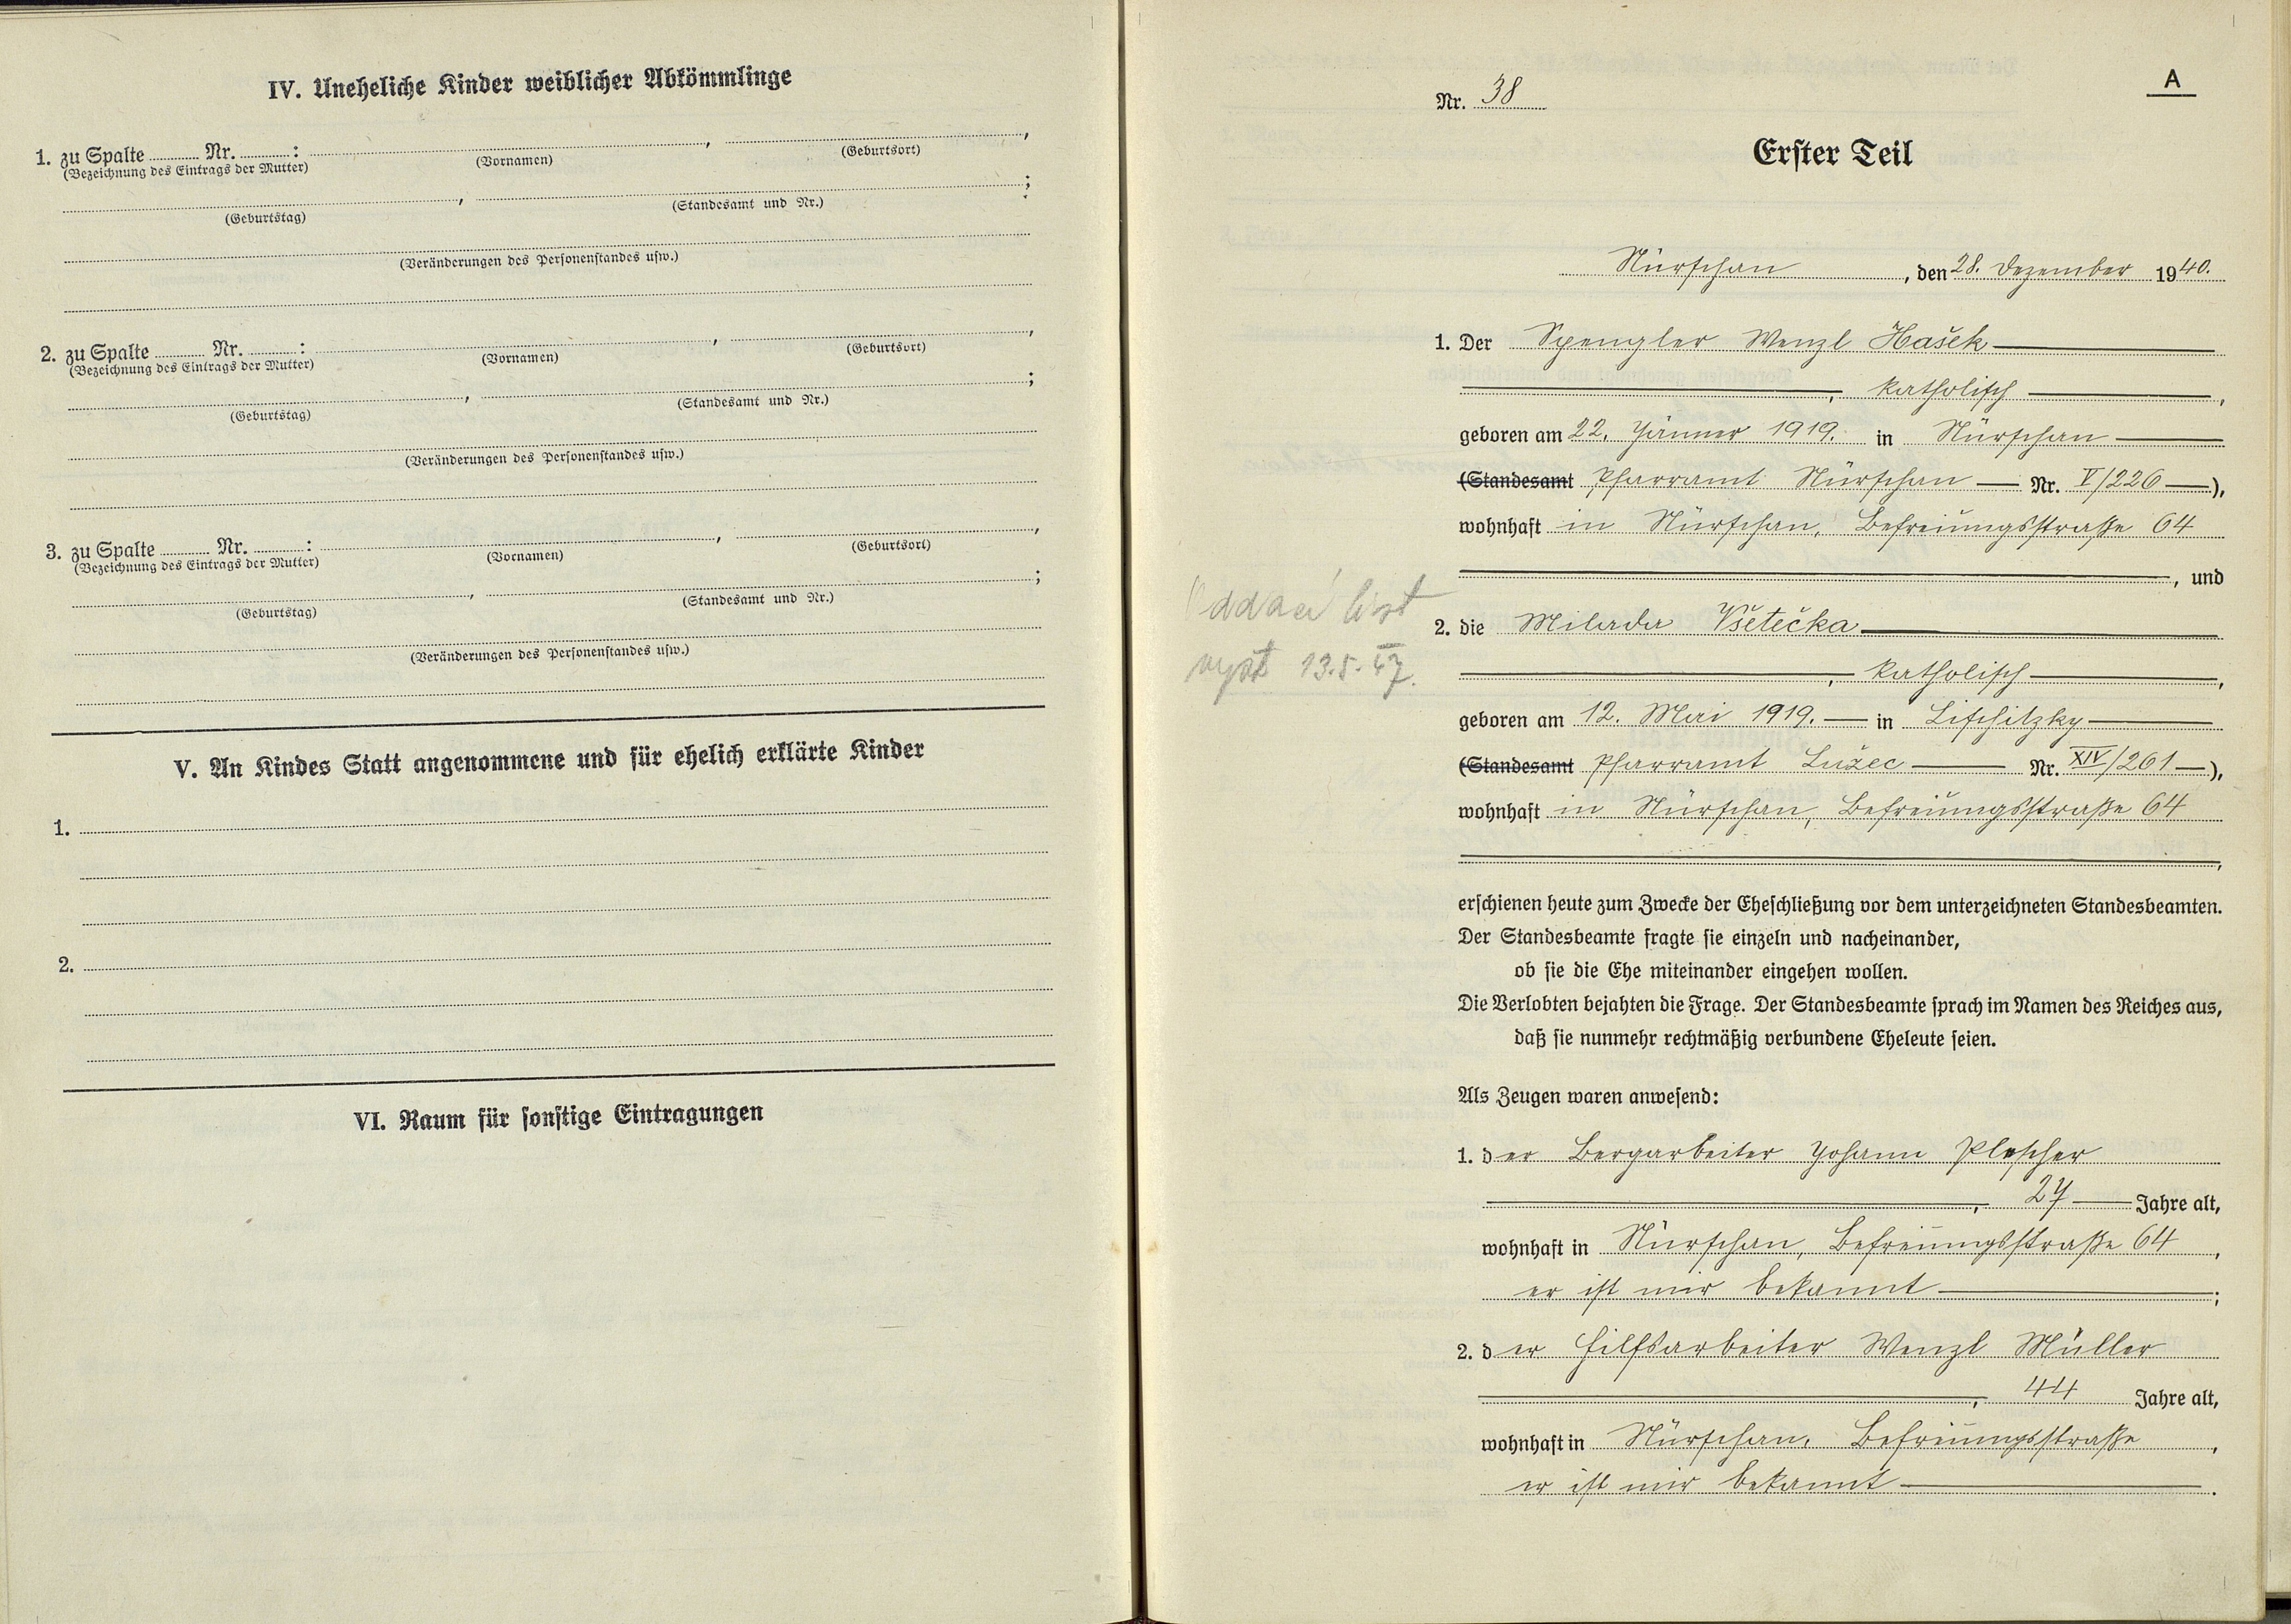 IV. Uneheliche Kinder weiblicher Abkömmlinge
1. zu Spalte ........ Nr. ........ : ........ , ........ ,
(Bezeichnung des Eintrags der Mutter) (Vornamen) (Geburtsort)
........ , ........ ;
(Geburtstag) (Standesamt und Nr.)
(Veränderungen des Personenstandes usw.)
2. zu Spalte ........ Nr. ........ : ........ , ........ ,
(Bezeichnung des Eintrags der Mutter) (Vornamen) (Geburtsort)
........ , ........ ;
(Geburtstag) (Standesamt und Nr.)
(Veränderungen des Personenstandes usw.)
3. zu Spalte ........ Nr. ........ : ........ , ........ ,
(Bezeichnung des Eintrags der Mutter) (Vornamen) (Geburtsort)
........ , ........ ;
(Geburtstag) (Standesamt und Nr.)
(Veränderungen des Personenstandes usw.)
V. An Kindes Statt angenommene und für ehelich erklärte Kinder
1.
2.
VI. Raum für sonstige Eintragungen
A
Nr. 38
Erster Teil
Nürschan, den 28. Dezember 1940.
1. Der Spengler Wenzl Hašek
, katholisch ,
geboren am 22. Jänner 1919. in Nürschan
(Standesamt Pfarramt Nürschan — Nr. V/226 —),
wohnhaft in Nürschan, Befreiungsstraße 64
, und
Oddací list
vyst 13.5.47.
2. die Milada Všetečka
, katholisch ,
geboren am 12. Mai 1919. — in Lischitzky
(Standesamt Pfarramt Lužec — Nr. XIV/261 —),
wohnhaft in Nürschan, Befreiungsstraße 64
,
erschienen heute zum Zwecke der Eheschließung vor dem unterzeichneten Standesbeamten.
Der Standesbeamte fragte sie einzeln und nacheinander,
ob sie die Ehe miteinander eingehen wollen.
Die Verlobten bejahten die Frage. Der Standesbeamte sprach im Namen des Reiches aus,
daß sie nunmehr rechtmäßig verbundene Eheleute seien.
Als Zeugen waren anwesend:
1. der Bergarbeiter Johann Plescher
, 27 — Jahre alt,
wohnhaft in Nürschan, Befreiungsstraße 64 ,
er ist mir bekannt — ;
2. der Hilfsarbeiter Wenzl Müller
, 44 Jahre alt,
wohnhaft in Nürschan, Befreiungsstraße ,
er ist mir bekannt — .